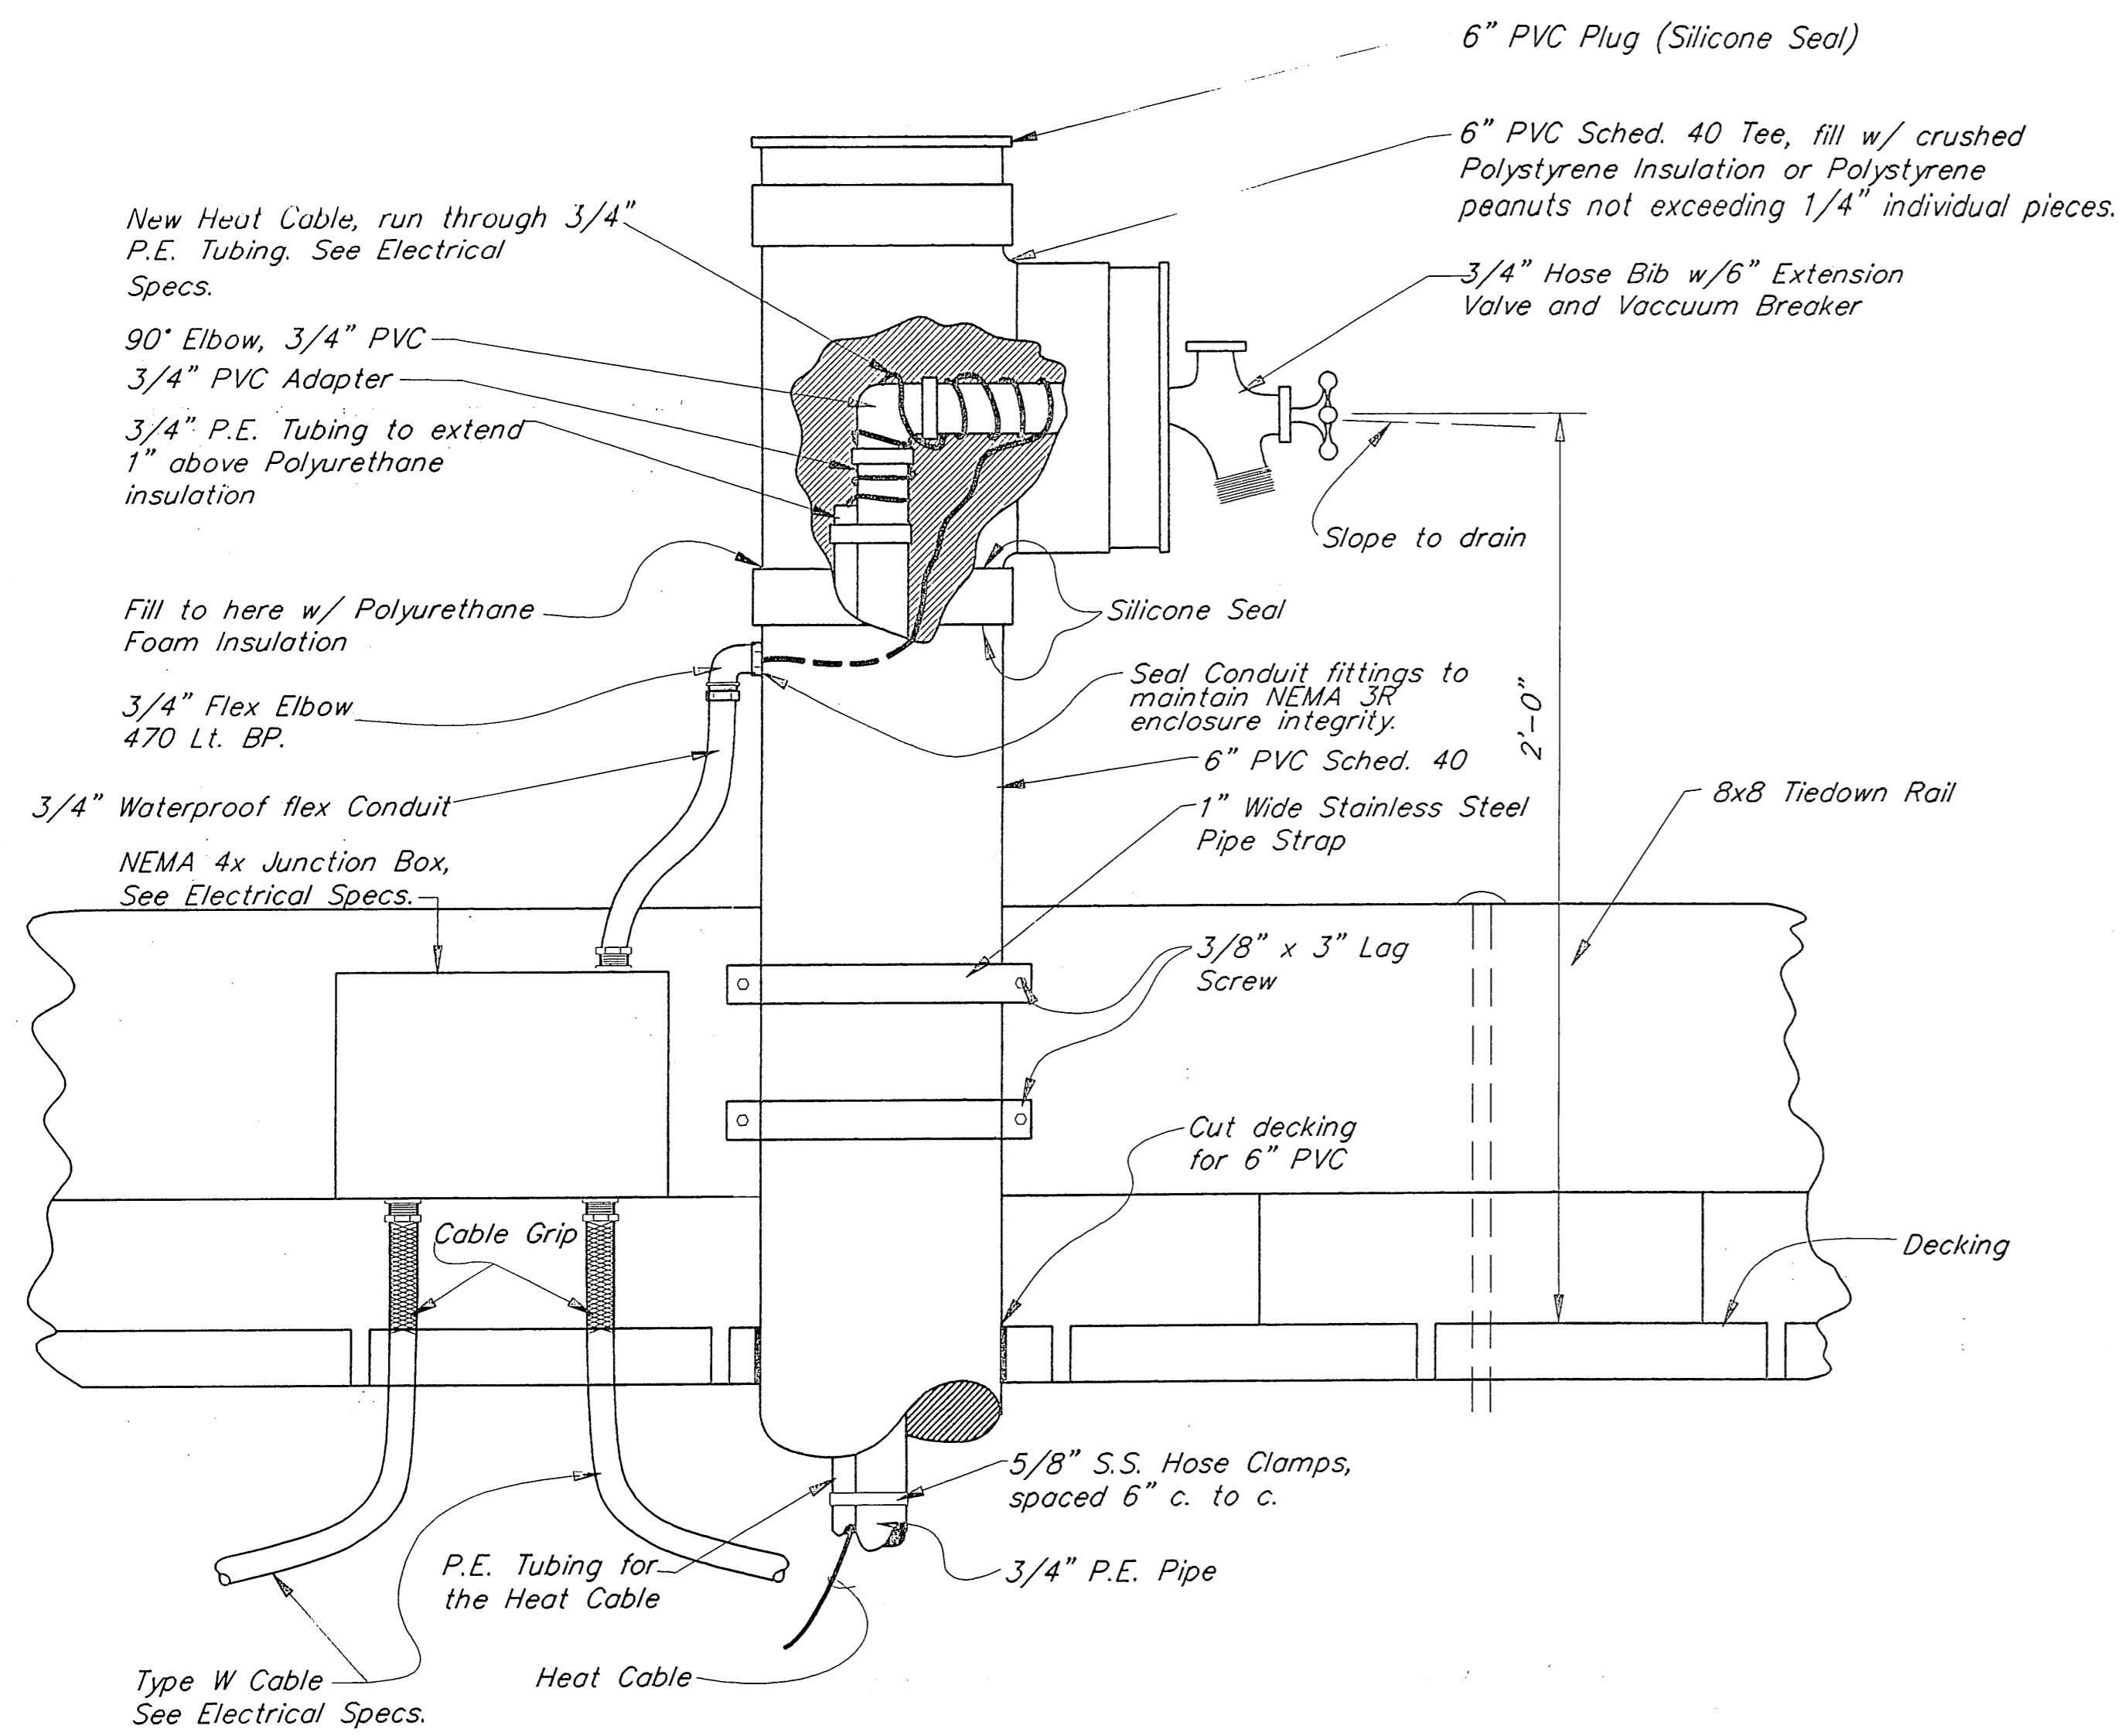 6" PVC Plug (Silicone Seal)
6" PVC Sched. 40 Tee, fill w/ crushed
Polystyrene Insulation or Polystyrene
peanuts not exceeding 1/4" individual pieces.
New Heat Cable, run through 3/4"
P.E. Tubing. See Electrical
Specs.
3/4" Hose Bib w/6" Extension
Valve and Vaccuum Breaker
90° Elbow, 3/4" PVC
3/4" PVC Adapter
3/4" P.E. Tubing to extend
1" above Polyurethane
insulation
Slope to drain
Fill to here w/ Polyurethane
Foam Insulation
Silicone Seal
3/4" Flex Elbow
470 Lt. BP.
Seal Conduit fittings to
maintain NEMA 3R
enclosure integrity.
2'-0"
6" PVC Sched. 40
3/4" Waterproof flex Conduit
1" Wide Stainless Steel
Pipe Strap
8x8 Tiedown Rail
NEMA 4x Junction Box,
See Electrical Specs.
3/8" x 3" Lag
Screw
Cut decking
for 6" PVC
Cable Grip
Decking
5/8" S.S. Hose Clamps,
spaced 6" c. to c.
P.E. Tubing for
the Heat Cable
3/4" P.E. Pipe
Type W Cable
See Electrical Specs.
Heat Cable